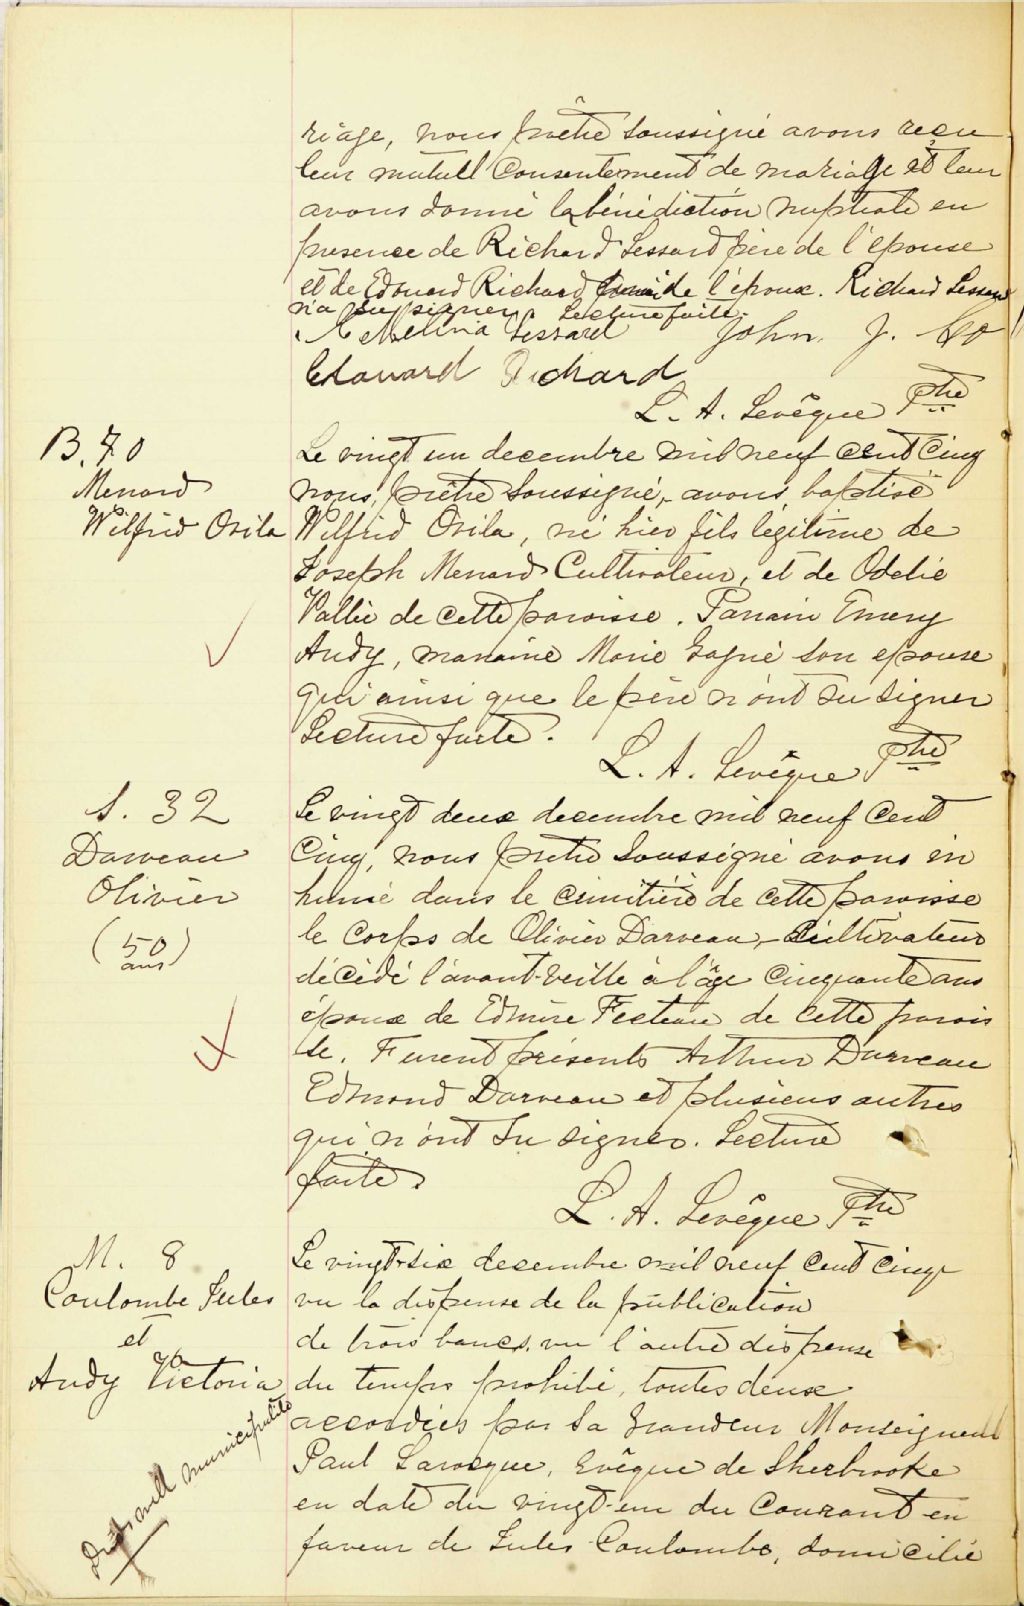 riage, nous prêtre soussigné avons recu
leur mutuell consentement de mariage et leur
avons donné la bénédiction nuptiale en
presence de Richard Lessard père de l'épouse
et de Edouard Richard de l'époux. Richard Lessard
n'a su signer. Lecture faite.
Lessard John. J.
Edouard Richard
L. A. Levêque Ptre
B. 70
Menard
Wilfrid Osila
Le vingt un decembre mil neuf cent cinq
nous, prêtre soussigné, avons baptisé
Wilfrid Osila, né hier fils légitime de
Joseph Menard Cultivateur, et de Odelie
Vallée de cette paroisse. Parrain Emery
Audy, marraine Marie Gagné son epouse
qui ainsi que le père n'ont su signer
Lecture faite.
L. A. Levêque Ptre
S. 32
Darveau
Olivier
(50
ans)
Le vingt deux decembre mil neuf cent
Cinq, nous prêtre soussigné avons in
humé dans le cimitière de cette paroisse
le corps de Olivier Darveau, Cultivateur
décédé l'avant-veille à l'âge cinquante ans
époux de Edmire Fecteau de cette parois
se. Furent présents Arthur Darveau
Edmond Darveau et plusieurs autres
qui n'ont su signer. Lecture
faite.
L. A. Levêque Ptre
M. 8
Coulombe Jules
et
Audy Victoria
municipalité
Le vingt-six decembre mil neuf cent cinq
vu la dispense de la publication
de trois bancs, vu l'autre dispense
du temps prohibé, toutes deux
accordées par Sa Grandeur Monseigneur
Paul Larocque, Evêque de Sherbrooke
en date du vingt-un du courant en
faveur de Jules Coulombe, domicilié